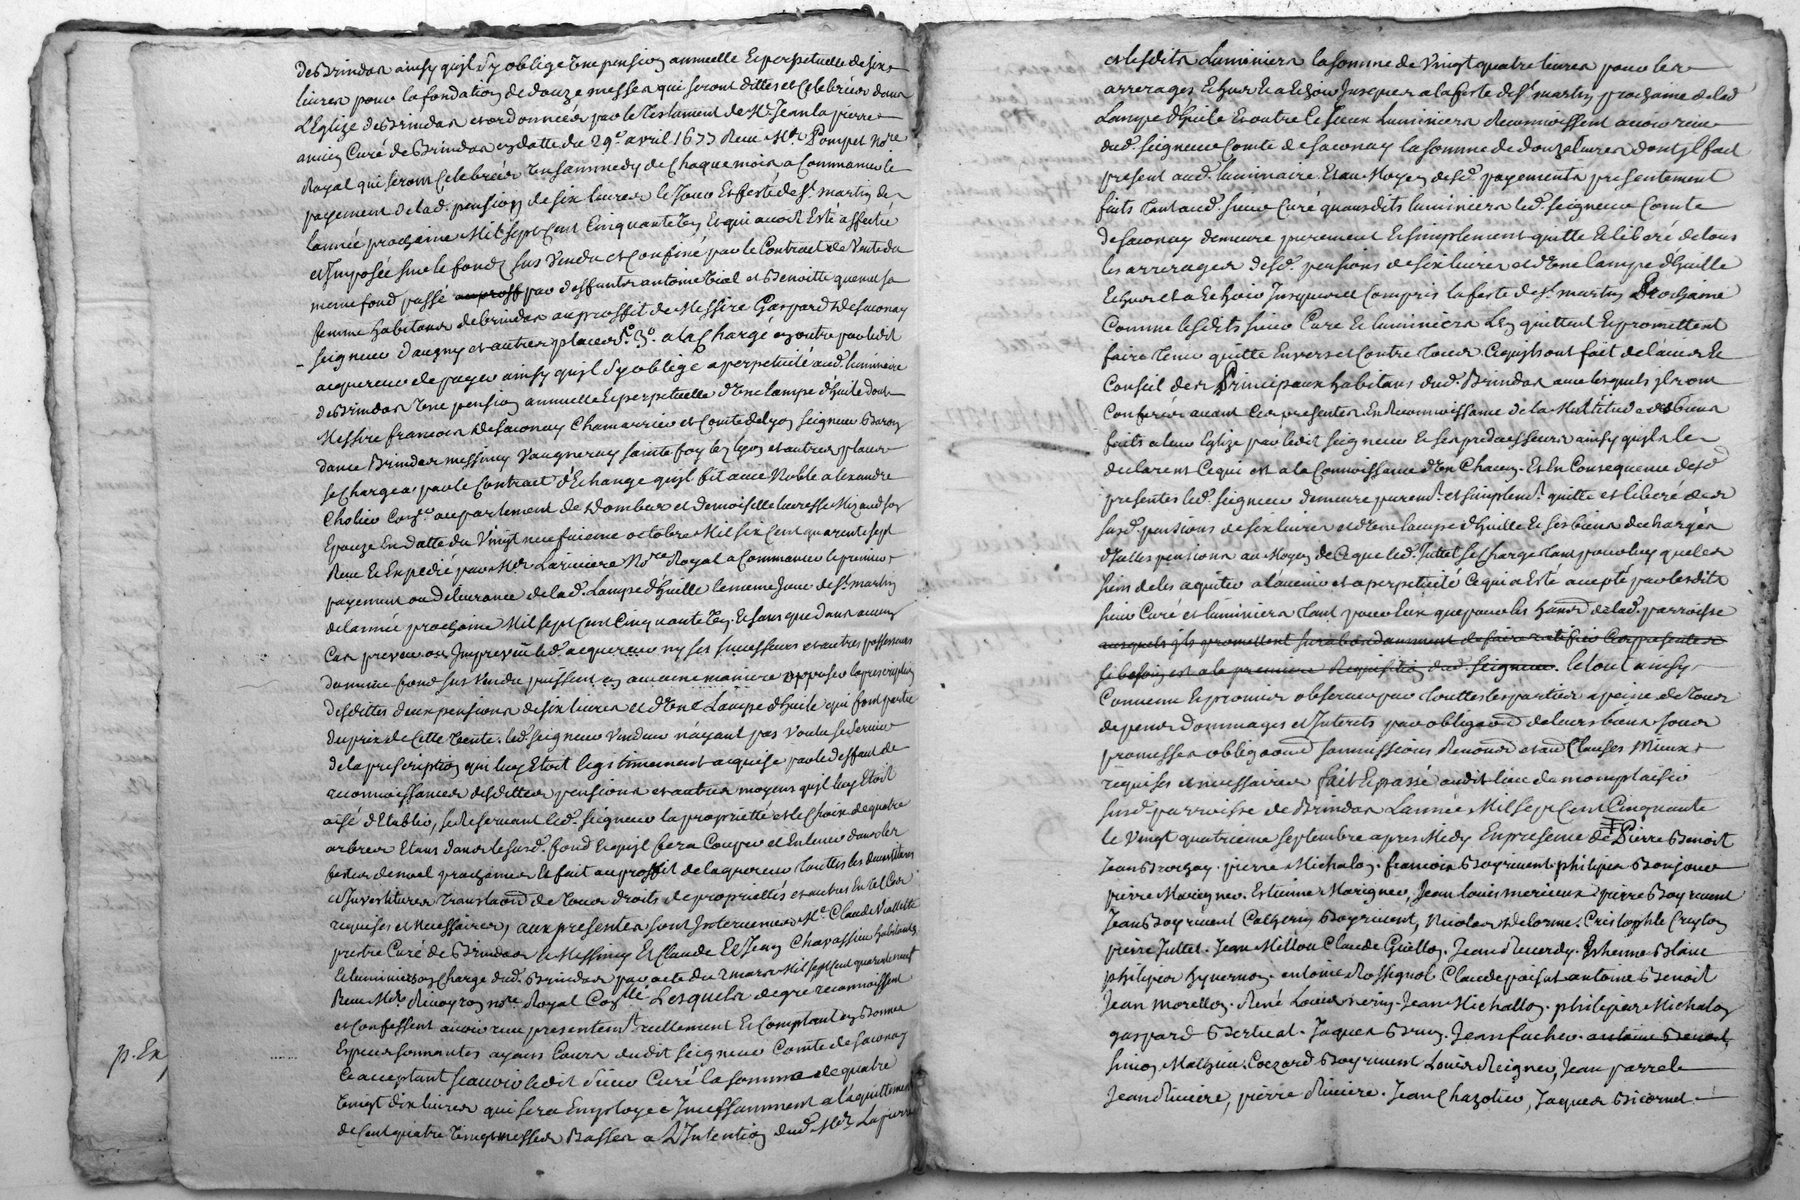 de Brindas ainsy quyl s'y oblige Une pension annuelle Et perpetuelle de six
livres pour la fondation de douze messes qui seront dittes et Celebrées dans
L'Eglize de Brindas et ordonnées par le Testament de Mre Jean lapierre
ancien Curé de Brindas en datte du 29e avril 1677 Receu Mre Pompet Nore
Royal qui seront Celebrées Un sammedy de Chaque mois a Commancer le
payement de lad. pension de six livres le Jour Et feste de St martin de
lannée prochaine Mil sept Cent Cinquante Un Et qui avoit Esté affectée
et Imposée sur le fond sus Vendu et Confiné par le Contract de Vente du
meme fond passé au proff par deffunts antoine Vial et Benoitte quenet sa
femme habitans de brindas au proffit de Messire Gaspard De saconay
seigneur daugny et autres places. a la Charge en outre par ledit
acquereur de payer ainsy quyl s'y oblige a perpetuité aud. luminaire
de Brindas Une pension annuelle Et perpetuelle d'Une lampe d'huile dont
Messire francois De saconay Chamarrier et Comte de lyon seigneur Baron
dans Brindas messimy Vaugneray sainte foy les lyon et autres places
se Chargea par le Contract d'Echange quyl fit avec Noble alexandre
Cholier Conser au parlement de Dombes et demoiselle lucresse Mizaud son
Epouze En datte du Vingt neufuieme octobre Mil six Cent quarente sept
Receu Et Expedié par Mre Lariviere Nore Royal a Commancer le premier
payement ou delivrance de lad. Lampe d'huille le meme Jour de St martin
de lannée prochaine Mil sept Cent Cinquante Un. Et sans que dans aucun
Cas preveu ou Impreveu led. acquereur ny ses successeurs et autres possesseurs
du meme fond sus Vendu puissent en aucune maniere opposer la prescription
desdittes deux pensions de six livres et d'Une Lampe d'huile qui font partie
du prix de Cette Vente. led. seigneur Vendeur n'ayant pas Voulu se servir
de la prescription qui luy Etoit legitimement acquise par le deffaut de
reconnoissances desdittes pensions et autres moyens quyl luy Etoit
aisé d'Etablir, se Reservant led. seigneur la propriette et le Choix de quatre
arbres Etans dans le susd. fond Et quyl fera Couper et Enlever dans les
festes de noel prochaines le fait au proffit de laquereur Touttes les devestitures
et Investitures Translaond de Tous droits de propriettés et autres En tel Cas
requises et Necessaires, aux presentes sont Intervenus Mre Claude Violette
prestre Curé de Brindas Et Messimy Et Claude Et Jean Chavassieu habitants
Et luminiers en Charge dud. Brindas par acte du 2 mars Mil sept Cent quarente neuf
Receu Mre Rivoyron nore Royal Lesquels de gré reconnoissent
et Confessent avoir receu presentemt reellement Et Comptant en Bonnes
Especes sonnantes ayans Cours dudit seigneur Comte de saconay
Ce acceptant scavoir ledit sieur Curé la somme de quatre
Vingt dix livres qui sera Employée Incessamment a l'aquittement
de Cent quatre Vingt messes Basses a L'Intention dud. Mre Lapierre
p. En
et lesdits Luminiers la somme de Vingt quatre livres pour les
arrerages Echus Et a Echoir Jusques a la feste de St martin prochaine de lad
Lampe d'huile Et outre Ce Iceux Luminiers Reconnoissent avoir receu
dud. seigneur Comte de saconay la somme de douze livres dont Il fait
present aud. luminaire. Et au Moyen desd. payements presentement
faits Tant aud. sieur Curé quausdits luminiers led. seigneur Comte
de saconay demeure purement Et simplement quitte Et liberé de tous
les arrerages desd. pensions de six livres et d'Une lampe d'huille
Echus et a Echoir Jusques et Compris la feste de St martin Prochaine
Comme lesdits sieur Curé Et luminiers L'En quittent Et promettent
faire Tenir quitte Envers et Contre Tous Ce quils ont fait de l'avis Et
Conseil des Principaux habitans dud. Brindas avec lesquels ils ont
Conferés avant Ces presentes En Reconnoissance de la Multitude des biens
faits a leur Eglize par ledit seigneur Et ses predecesseurs ainsy quyls le
declarent Ce qui est a la Connoissance d'Un Chacun. Et En Consequence desd
presentes led. seigneur demeure puremt. et simplemt. quitte et liberé des
susd. pensions de six livres et d'Une lampe d'huille Et ses biens dechargés
d'Icelles pensions au Moyen de Ce que led. Juttet se Charge Tant pour luy que les
siens de les aquiter a lavenir et a perpetuité Ce qui a Esté accepté par lesdits
sieur Curé et luminiers Tant pour Eux que pour les hans de lad. parroisse
ausquels ils promettent surabondamment de faire ratifier Ces presentes
si besoin est a la premiere Requisition dud. seigneur. le tout ainsy
Convenu Et promis observer par Touttes les parties a peine de Tous
depens dommages et Interets par obligaond de leurs biens sous
promesses obligaond soumissions Renond et aud Clauses Mieux
requises et necessaires fait Et passé audit lieu de momplaisir
susd. parroisse de Brindas Lannée Mil sept Cent Cinquante
le Vingt quatrieme septembre apres Midy En presence de Pierre Benoit
Jean Brochay. pierre Michalon. francois Boyrivent. philipes Bonjour
pierre Marignes. Estienne Marignes, Jean louis merieux. pierre Boyrivent
Jean Boyrivent Catherin Boyrivent, Nicolas Delorme. Cristophle Creyton
pierre Juttet. Jean Millou Claude Guillon. Jean Rverdy. Estienne Blanc
philipes Guernon. antoine Rossignol. Claude antoine Benoit
Jean morellon. René Louis nerin. Jean Michallon. philipes Michalon
gaspard Bertiet. Jaques Brun. Jean fucher. antoine Benoit,
simon Mathieu. Boyrivent Louis Reignes, Jean parrel
Jean Riviere, pierre Riviere. Jean Chazotier, Jaques Bicornet.